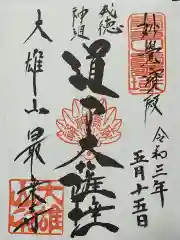 妙覺寶殿
令和三年
五月十五日
威徳
神通
道了大薩埵
大雄山最乗寺